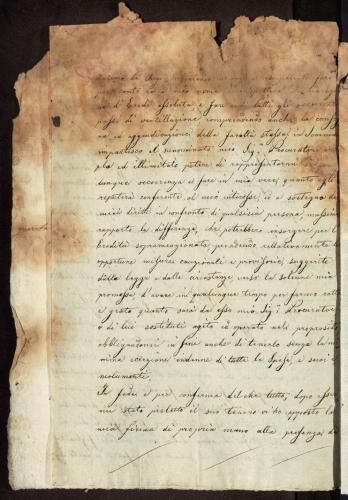 per conto io a mio nome
di Eredi assoluta e fare indi tutti gli occorrenti
passi di ventillazione compresivo anche la
ed aggiudicazione della facoltà stessa, in somma
impartisco il sunominato mio Sig.r Procuratore
pla ed illimitato potere di rappresentarmi
lunque occorrenza e fare in mia vece, quanto egli
reputerà conferente al mio interesse, io a sostegno de
miei diritti in confronto di qualsisia persona, massime
rapporto le differenze, che potrebbero insorgere per l'
Eredità sopramenzionata prendendo rellativamente
opportune misure cauzionali e provisorie, suggerite
dalla legge e dalle circostanze verso la solenne mia
promessa d'avere in qualunque tempo per fermo rato
e grato quanto sarà da esso mio Sig.r Procuratore
o di lui sostituti agito ed operato nel proposito
obbligandomi in fine anche di tenerlo senza la
mima eccezione indenne di tutte le spese, e suoi e
molumenti.
In fede e per conferma del che tutto, dopo esser
mi stato preletto il suo tenore vi ho apposto la
mia firma di propria mano alla presenza de